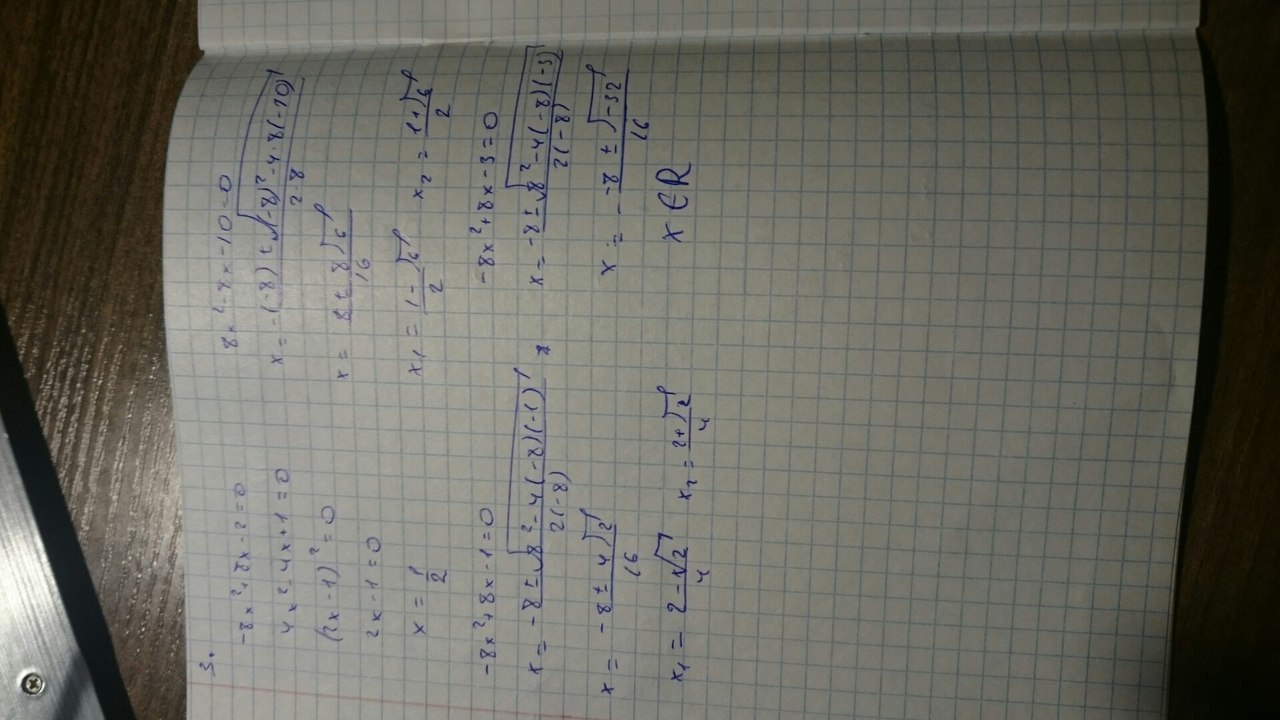 3.
-8x²+8x-2=0
4x²-4x+1=0
(2x-1)²=0
2x-1=0
x = 1/2
8x²-8x-10=0
x = -(-8) ± √((-8)²-4·8(-10)) / 2·8
x = 8 ± 8√6 / 16
x₁ = 1-√6 / 2 x₂ = 1+√6 / 2
-8x²+8x-1=0
x = -8 ± √(8²-4(-8)(-1)) / 2(-8)
x = -8 ± 4√2 / 16
x₁ = 2-√2 / 4 x₂ = 2+√2 / 4
-8x²+8x-3=0
x = -8 ± √(8²-4(-8)(-3)) / 2(-8)
x = - -8 ± √-32 / 16
x ∈ R